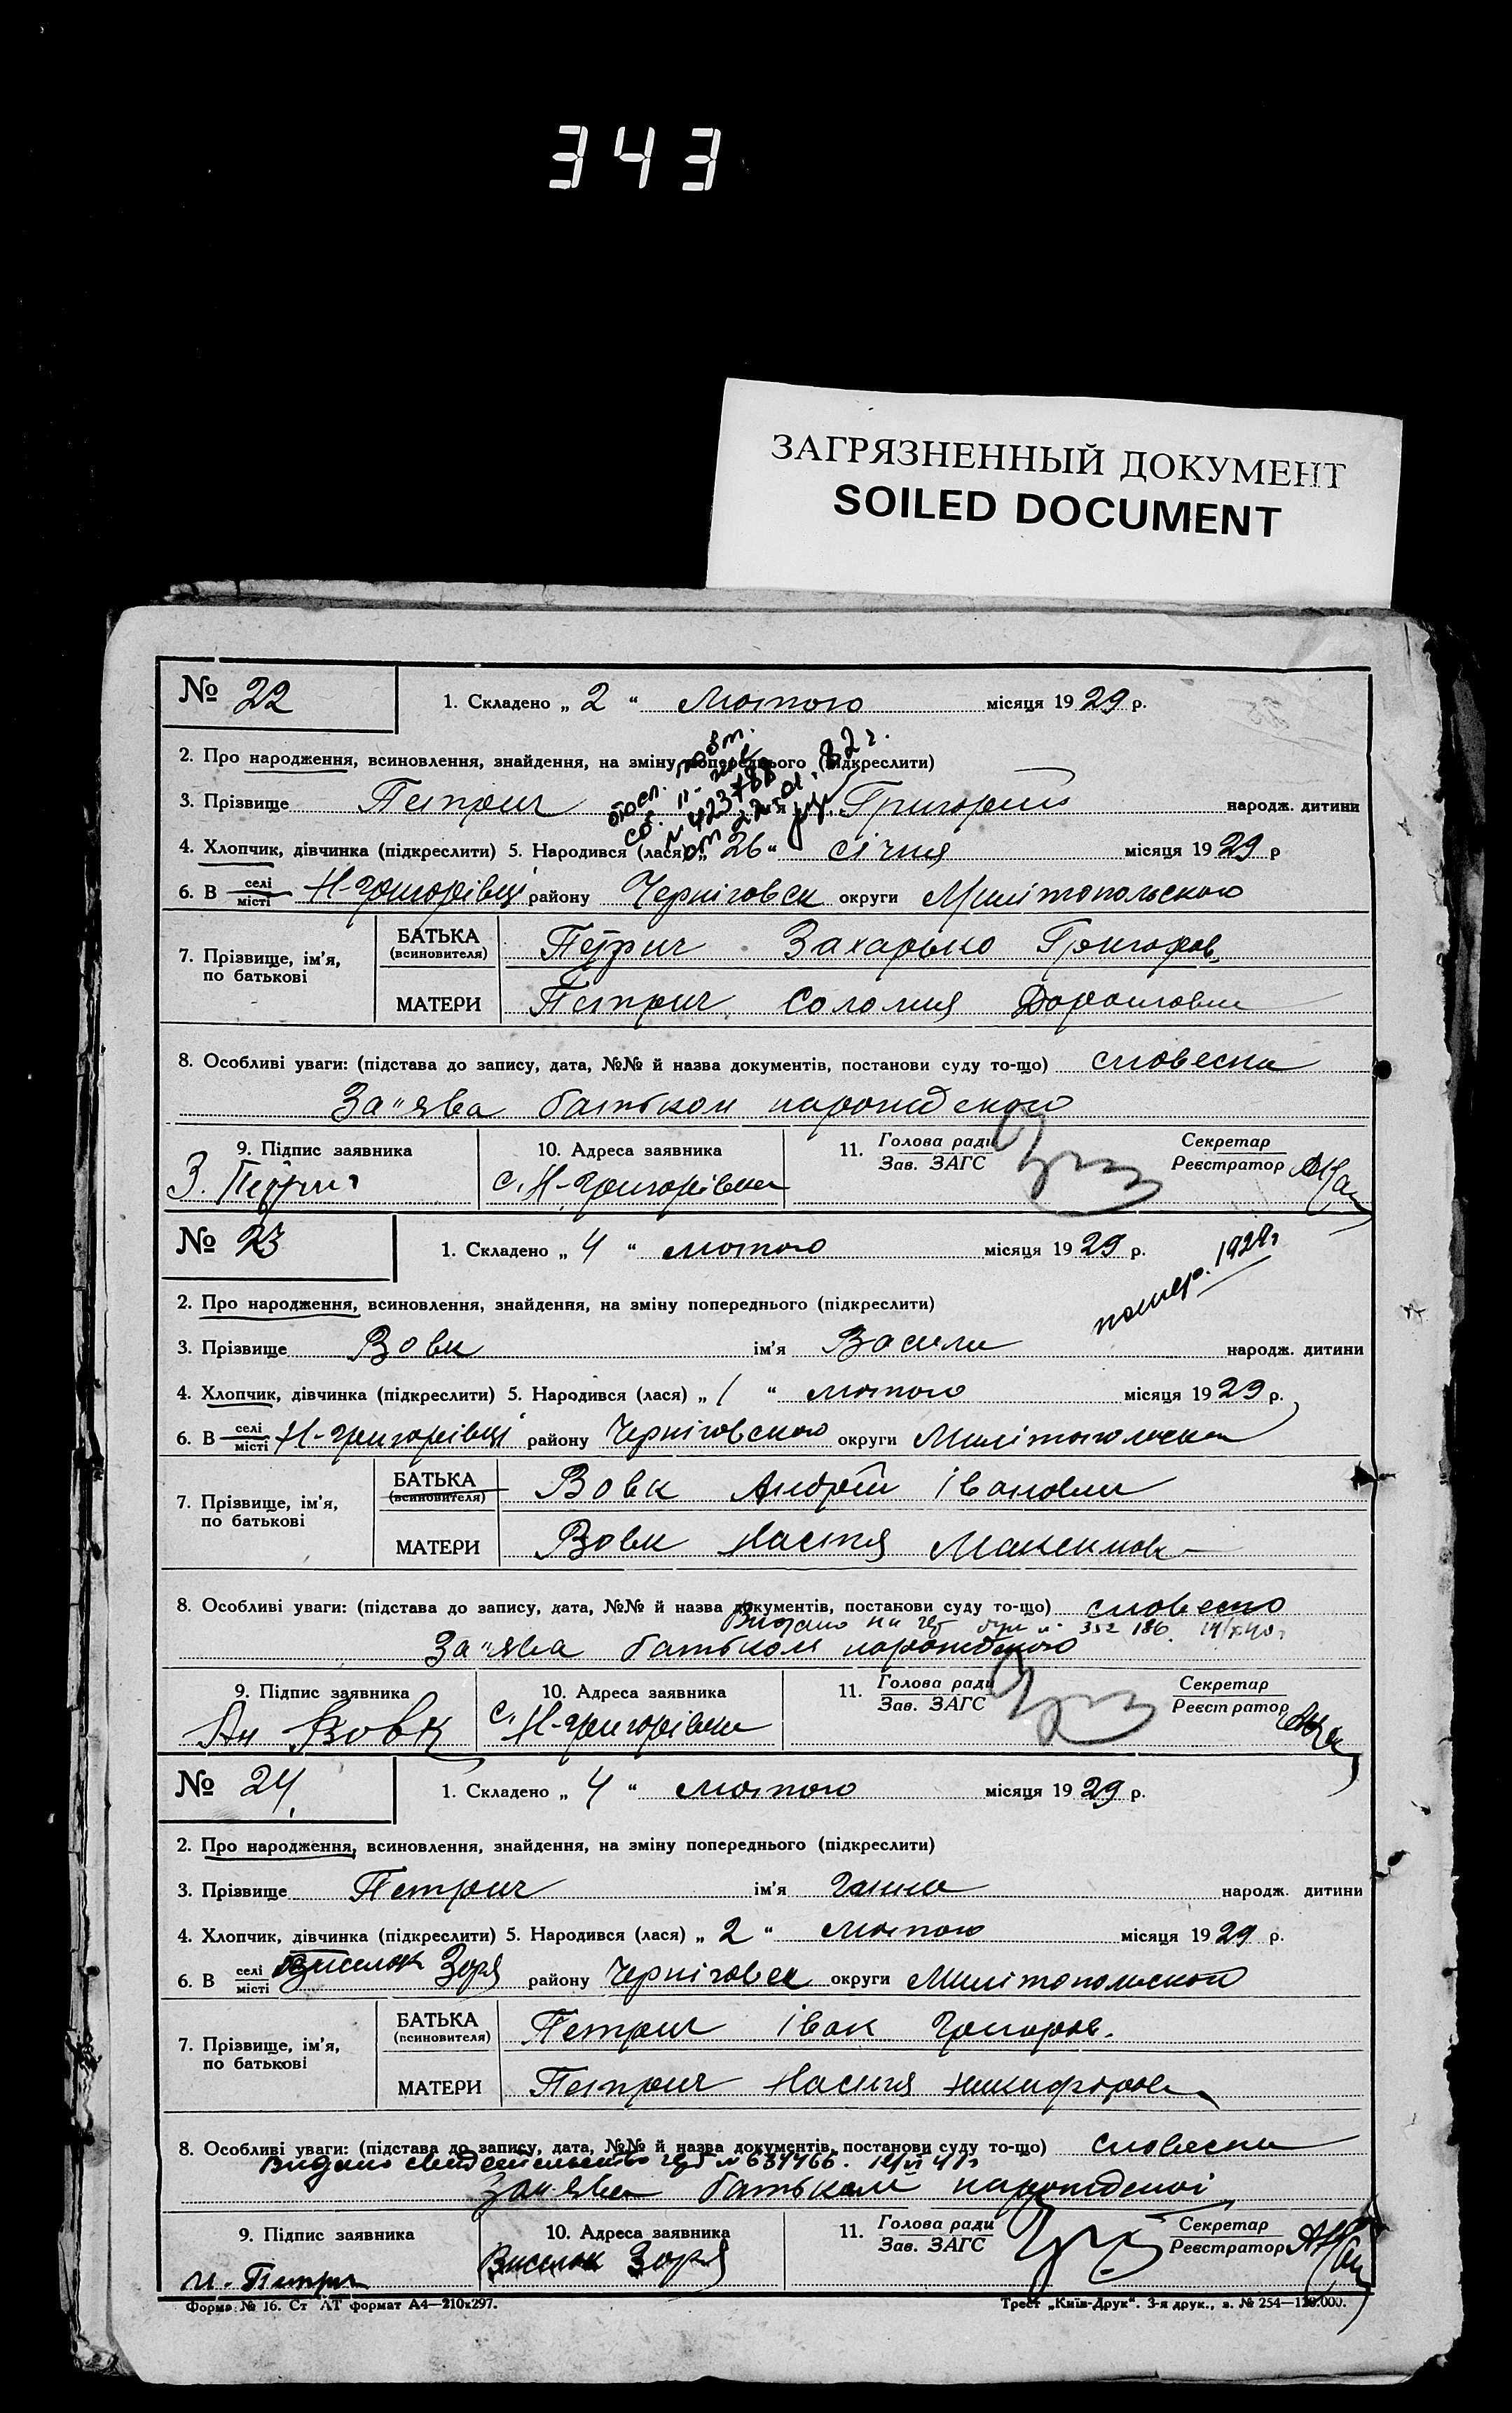 343
ЗАГРЯЗНЕННЫЙ ДОКУМЕНТ
SOILED DOCUMENT
№ 22
1. Складено „ 2 “ Лютого місяця 1929 р.
2. Про народження, всиновлення, знайдення, на зміну попереднього (підкреслити)
3. Прізвище Петрич ім'я Григорій народж. дитини
4. Хлопчик, дівчинка (підкреслити) 5. Народився (лася) „ 26 “ січня місяця 1929 р
6. В селі/місті Н-Григорівці району Черніговск округи Милітопольського
7. Прізвище, ім'я, по батькові
БАТЬКА (всиновителя) Петрич Захарько Григоров.
МАТЕРИ Петрич Соломия
8. Особливі уваги: (підстава до запису, дата, №№ й назва документів, постанови суду то-що) словесна
За"ява батьком народженого
9. Підпис заявника 10. Адреса заявника 11. Голова ради/Зав. ЗАГС Секретар/Реєстратор
З. Петрич с. Н-Григорівка
№ 23
1. Складено „ 4 “ лютого місяця 1929 р.
помер.
2. Про народження, всиновлення, знайдення, на зміну попереднього (підкреслити)
3. Прізвище Вовк ім'я Василь народж. дитини
4. Хлопчик, дівчинка (підкреслити) 5. Народився (лася) „ 1 “ лютого місяця 1929 р.
6. В селі/місті Н-Григорівці району Черніговского округи
7. Прізвище, ім'я, по батькові
БАТЬКА (всиновителя) Вовк Андрій Іванович
МАТЕРИ Вовк Настя Максимов
8. Особливі уваги: (підстава до запису, дата, №№ й назва документів, постанови суду то-що) словесно
Видано 352 186
За"ява батьком народженого
9. Підпис заявника 10. Адреса заявника 11. Голова ради/Зав. ЗАГС Секретар/Реєстратор
Ан Вовк с. Н-Григорівка
№ 24.
1. Складено „ 4 “ лютого місяця 1929 р.
2. Про народження, всиновлення, знайдення, на зміну попереднього (підкреслити)
3. Прізвище Петрич ім'я Ганна народж. дитини
4. Хлопчик, дівчинка (підкреслити) 5. Народився (лася) „ 2 “ лютого місяця 1929 р.
6. В селі/місті Виселок Зоря району Черніговск округи Милітопольского
7. Прізвище, ім'я, по батькові
БАТЬКА (всиновителя) Петрич Іван Григоров.
МАТЕРИ Петрич Настя Никифоров
8. Особливі уваги: (підстава до запису, дата, №№ й назва документів, постанови суду то-що) словесна
Видано
Заява батьком народженої
9. Підпис заявника 10. Адреса заявника 11. Голова ради/Зав. ЗАГС Секретар/Реєстратор
И. Петрич Виселок Зоря
Форма № 16. Ст АТ формат А4—210х297.
Трест „Київ-Друк“. 3-я друк., з. № 254—120.000.